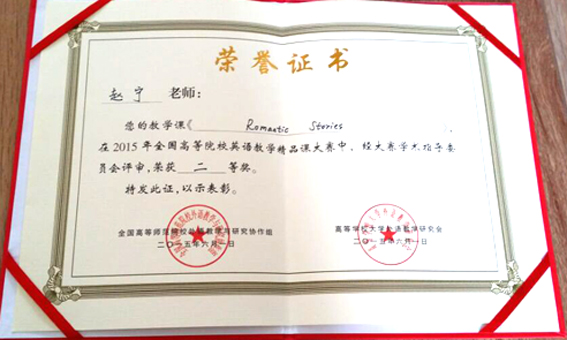 荣誉证书
赵宁 老师：
您的教学课《 Romantic Stories 》，
在2015年全国高等院校英语教学精品课大赛中，经大赛学术指导委
员会评审，荣获 二 等奖。
特发此证，以示表彰。
全国高等师范院校外语教学与研究协作组
二〇一五年六月一日
高等学校大学外语教学研究会
二〇一五年六月一日